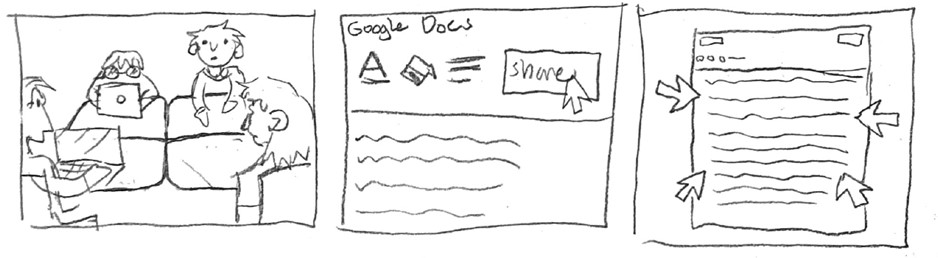 Google Docs
A
share